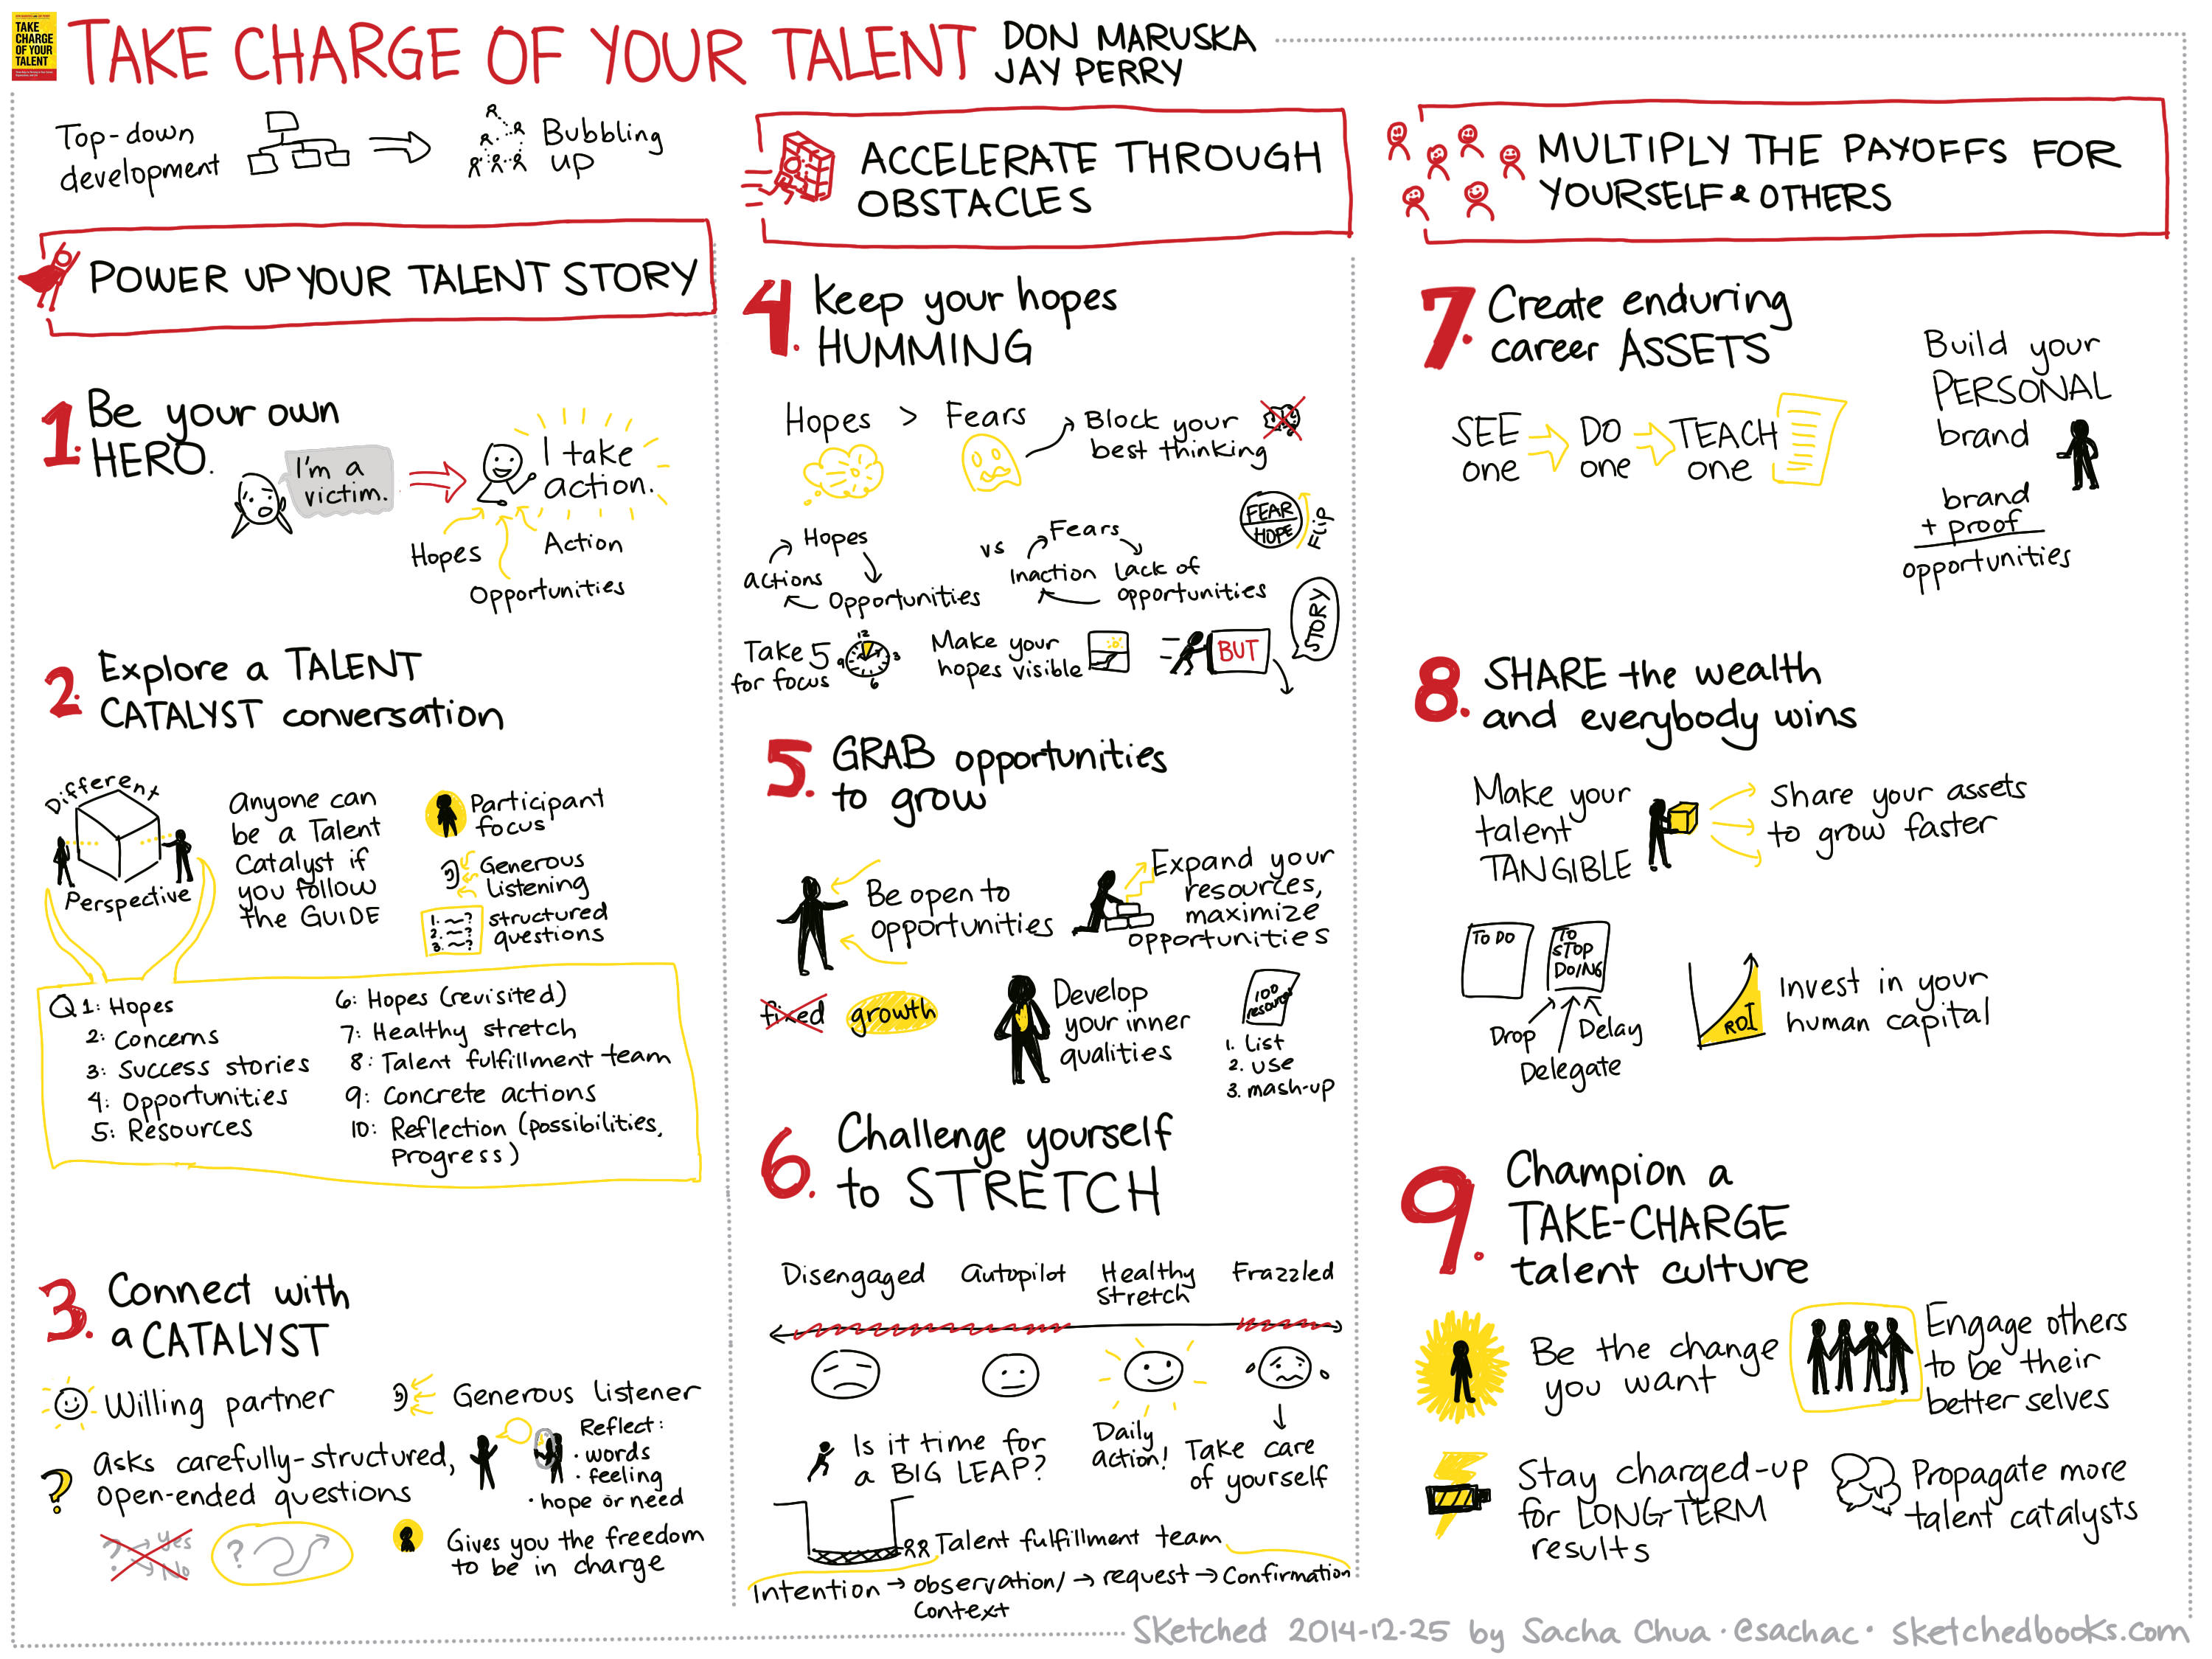 TAKE CHARGE OF YOUR TALENT
TAKE CHARGE OF YOUR TALENT
DON MARUSKA
JAY PERRY
Top-down
development
Bubbling
up
POWER UP YOUR TALENT STORY
1. Be your own
HERO.
I'm a
victim.
I take
action.
Hopes
Action
Opportunities
2. Explore a TALENT
CATALYST conversation
Different
Perspective
Anyone can
be a Talent
Catalyst if
you follow
the GUIDE
Participant
focus
Generous
listening
1. ~?
2. ~?
3. ~?
structured
questions
Q1: Hopes
2: Concerns
3: Success stories
4: Opportunities
5: Resources
6: Hopes (revisited)
7: Healthy stretch
8: Talent fulfillment team
9: Concrete actions
10: Reflection (possibilities,
Progress)
3. Connect with
a CATALYST
Willing partner
Generous listener
? Asks carefully-structured,
open-ended questions
Reflect:
· words
· feeling
· hope or need
? Yes
No
?
Gives you the freedom
to be in charge
ACCELERATE THROUGH
OBSTACLES
4. Keep your hopes
HUMMING
Hopes > Fears
Block your
best thinking
FEAR
HOPE
Flip
Hopes
actions
Opportunities
vs
Fears
Inaction
Lack of
opportunities
Take 5
for focus
12
3
6
9
Make your
hopes visible
BUT
STORY
5. GRAB opportunities
to grow
Be open to
opportunities
Expand your
resources,
maximize
opportunities
fixed
growth
Develop
your inner
qualities
100
resources
1. List
2. use
3. mash-up
6. Challenge yourself
to STRETCH
Disengaged
Autopilot
Healthy
stretch
Frazzled
Is it time for
a BIG LEAP?
Daily
action!
Take care
of yourself
Talent fulfillment team
Intention → observation/ → request → Confirmation
Context
MULTIPLY THE PAYOFFS FOR
YOURSELF & OTHERS
7. Create enduring
career ASSETS
SEE
one
DO
one
TEACH
one
Build your
PERSONAL
brand
brand
+ proof
opportunities
8. SHARE the wealth
and everybody wins
Make your
talent
TANGIBLE
Share your assets
to grow faster
TO DO
TO
STOP
DOING
Drop
Delay
Delegate
ROI
Invest in your
human capital
9. Champion a
TAKE-CHARGE
talent culture
Be the change
you want
Engage others
to be their
better selves
Stay charged-up
for LONG-TERM
results
Propagate more
talent catalysts
Sketched 2014-12-25 by Sacha Chua · @sachac · sketchedbooks.com